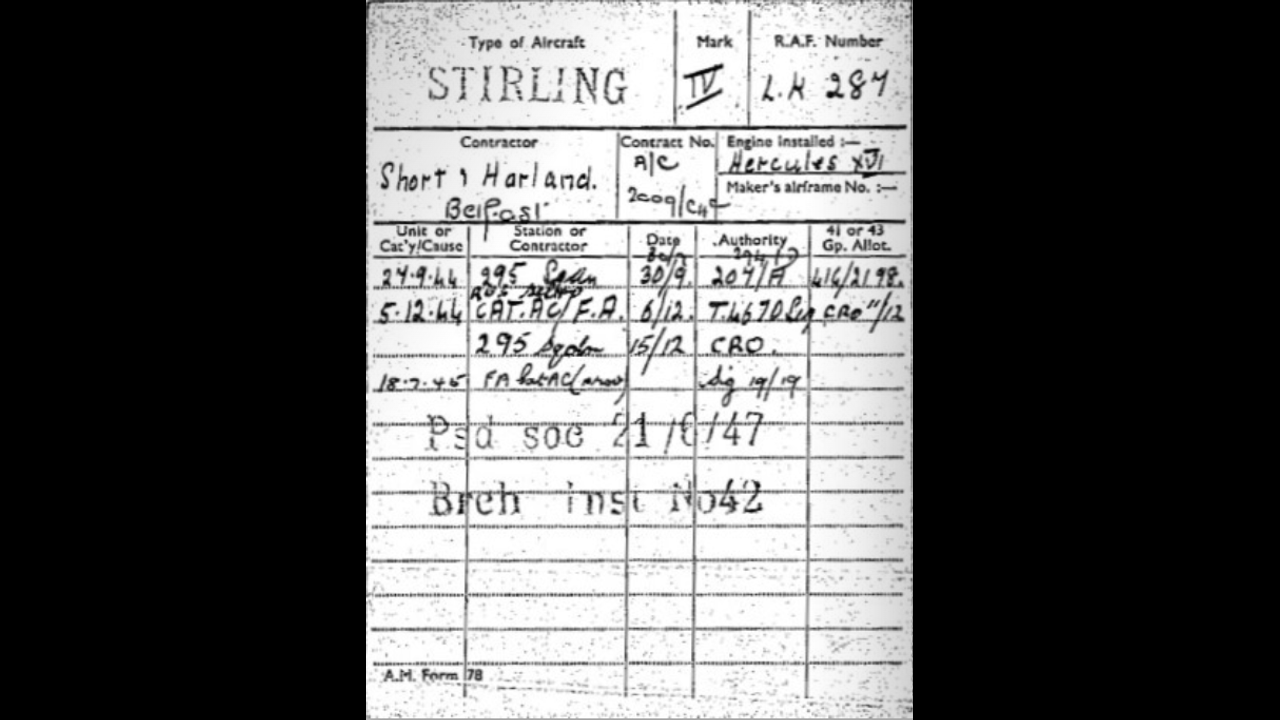 Type of Aircraft Mark R.A.F. Number
STIRLING IV L.K 287
Contractor Contract No. Engine installed :—
Short & Harland. A/C Hercules XVI
Belfast 2009/C4c Maker's airframe No. :—
Unit or Cat'y/Cause Station or Contractor Date Authority 41 or 43 Gp. Allot.
27.9.44 295 Sqdn 30/9. 207/A 416/2198.
5.12.44 CAT.AC/F.A. 6/12. T.467 CRO 11/12
295 Sqdn 15/12 CRO.
18.7.45 FA Cat AC Sig 19/19
Psd soc 21/6/47
Brch inst No42
A.M. Form 78